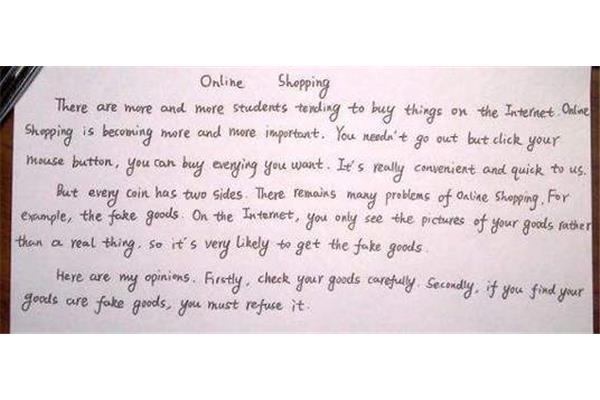 Online Shopping
There are more and more students tending to buy things on the Internet. Online
Shopping is becoming more and more important. You needn't go out but click your
mouse button, you can buy everying you want. It's really convenient and quick to us.
But every coin has two sides. There remains many problems of Online Shopping. For
example, the fake goods. On the Internet, you only see the pictures of your goods rather
than a real thing. so it's very likely to get the fake goods.
Here are my opinions. Firstly, check your goods carefully. Secondly, if you find your
goods are fake goods, you must refuse it.